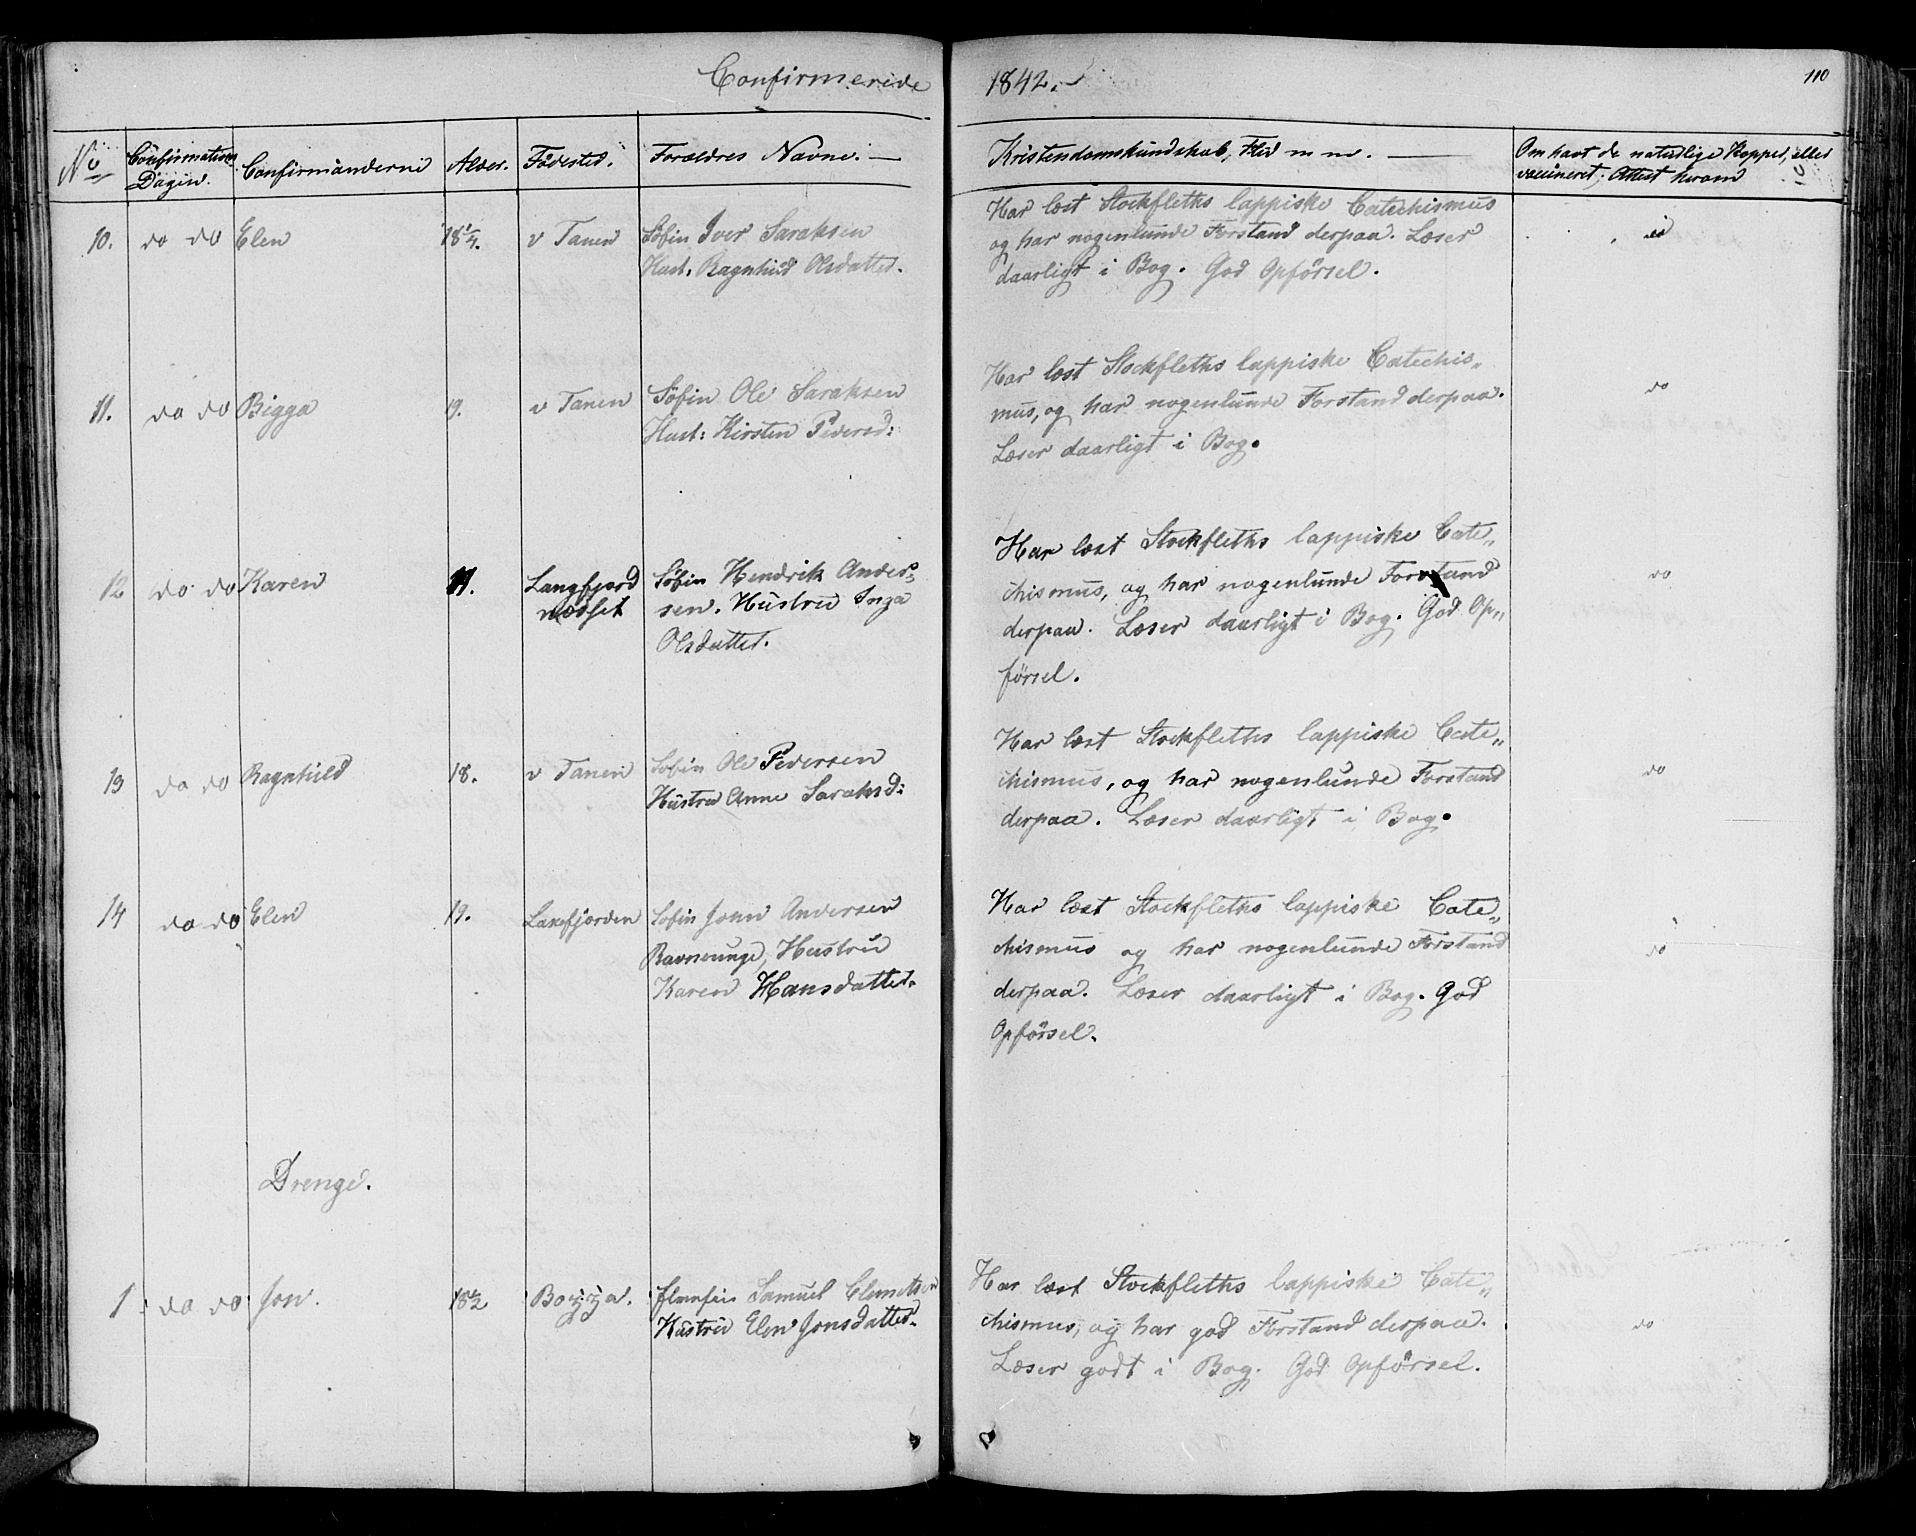 Confirmerede 1842.
110
No
Confirmations Dagen.
Confirmanderne
Alder.
Fødested.
Forældres Navne.
Kristendomskundskab, Flid m m.
Om havt de naturlige Kopper, eller vaccineret, Attest herom
10. do do Elen 18 1/4. v Tanen Søfin Iver Saraksen
Hust. Ragnhild Olsdatter.
Har læst Stockfleths lappiske Catechismus
og har nogenlunde Forstand derpaa. Læser
daarligt i Bog. God Opförsel.
do
11. do do Bigga 19. v Tanen Søfin Ole Saraksen
Hust: Kirsten Pedersd:
Har læst Stockfleths lappiske Catechis„
mus, og har nogenlunde Forstand derpaa.
Læser daarligt i Bog.
do
12 do do Karen Langfjord
næsset
Søfin Hendrik Ander„
sen. Hustru Inga
Olsdatter.
Har læst Stockfleths lappiske Cate„
chismus, og har nogenlunde Forstand
derpaa. Læser daarligt i Bog. God Op„
försel.
do
13 do do Ragnhild 18. v Tanen Søfin Ole Pedersen
Hustru Anne Saraksd:
Har læst Stockfleths lappiske Cate„
chismus, og har nogenlunde Forstand
derpaa. Læser daarligt i Bog.
do
14 do do Elen 19. Laxefjorden Søfin John Andersen
Ravneunge, Hustru
Karen Hansdatter.
Har læst Stockfleths lappiske Cate„
chismus og har nogenlunde Forstand
derpaa. Læser daarligt i Bog. God
Opförsel.
do
Drenge.
1 do do Jon. 18 1/2 Samuel Clemetsen
Hustru Elen Jonsdatter.
Har læst Stockfleths lappiske Cate„
chismus, og har god Forstand derpaa.
Læser godt i Bog. God Opförsel.
do